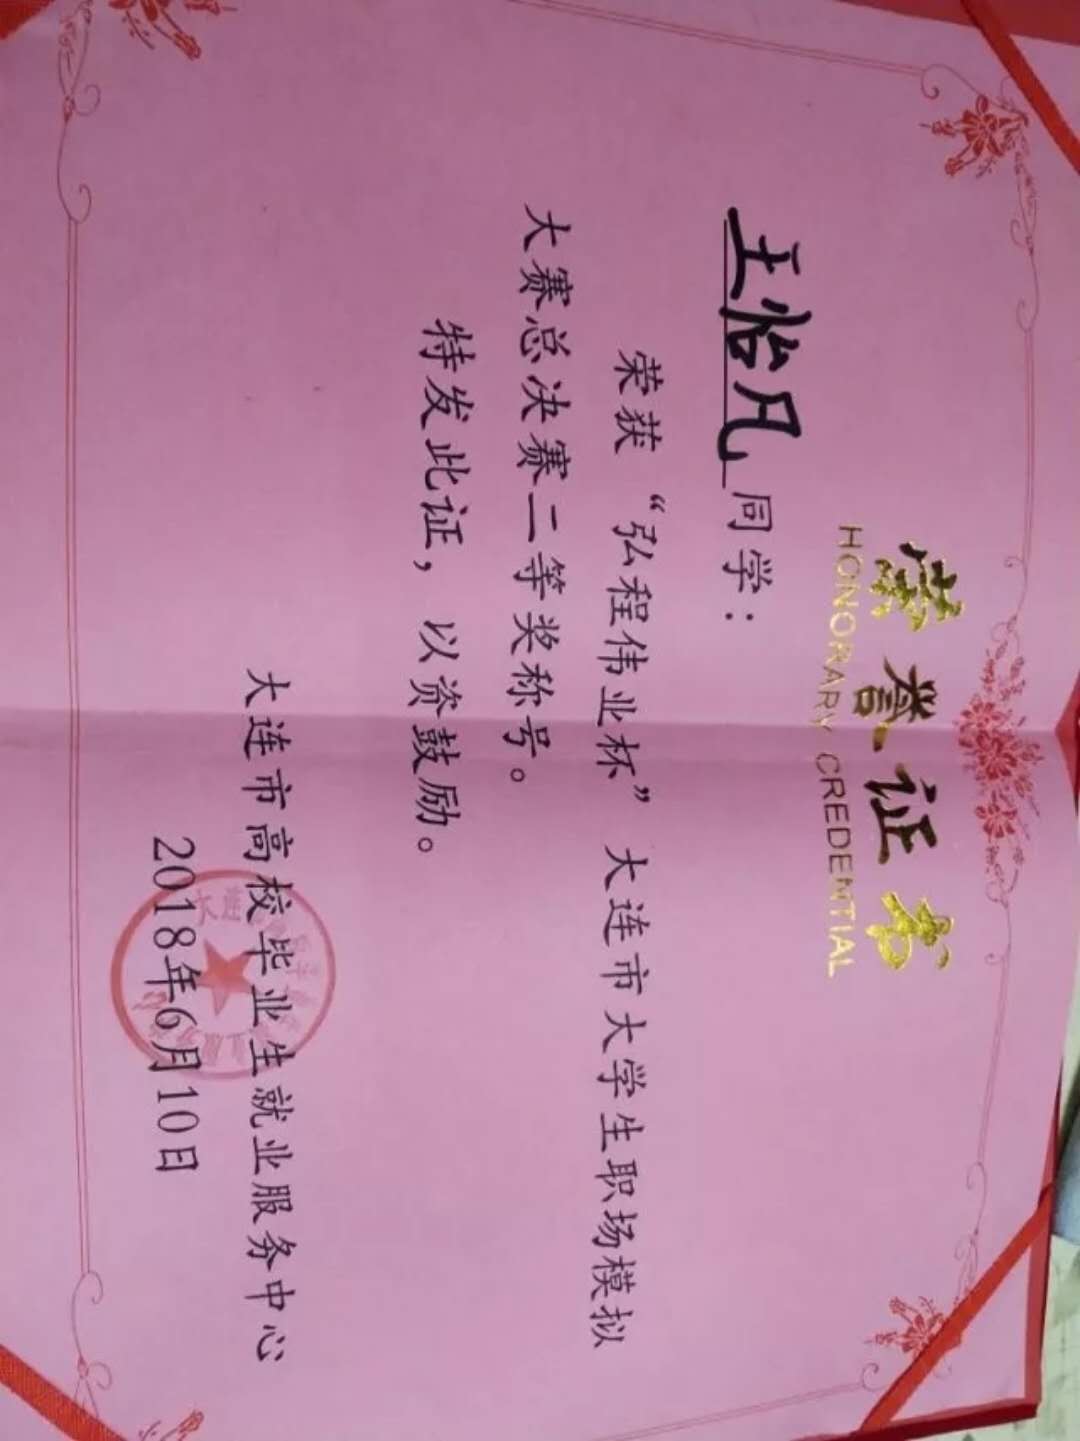 荣誉证书
HONORARY CREDENTIAL
王怡凡同学：
荣获“弘程伟业杯”大连市大学生职场模拟
大赛总决赛二等奖称号。
特发此证，以资鼓励。
大连市高校毕业生就业服务中心
2018年6月10日